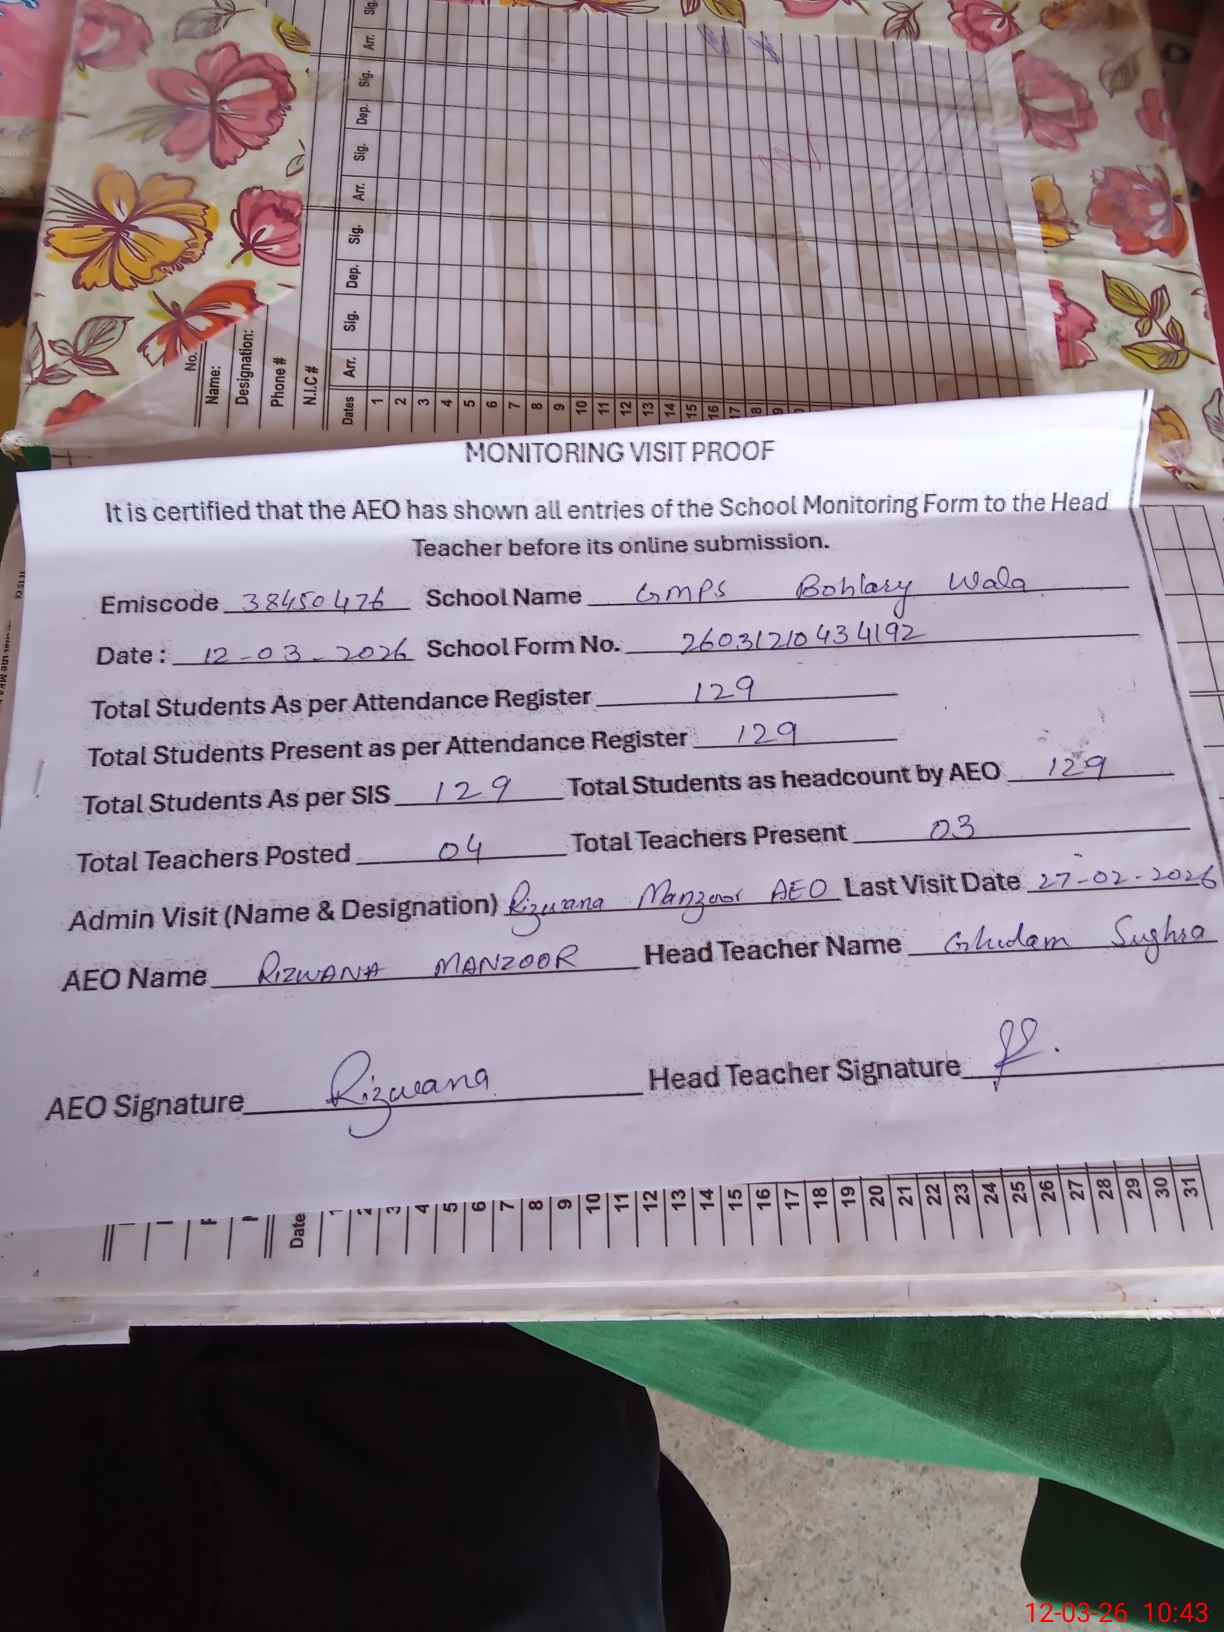 Sig.
Arr.
Sig.
Dep.
Sig.
Arr.
Sig.
Dep.
Sig.
Arr.
Dates
No.
Name:
Designation:
Phone #
N.I.C #
1 2 3 4 5 6 7 8 9 10 11 12 13 14 15 16 17 18
MONITORING VISIT PROOF
It is certified that the AEO has shown all entries of the School Monitoring Form to the Head
Teacher before its online submission.
Emiscode 38450476 School Name GMPS Bohlary Wala
Date : 12-03-2026 School Form No. 26031210434192
Total Students As per Attendance Register 129
Total Students Present as per Attendance Register 129
Total Students As per SIS 129 Total Students as headcount by AEO 129
Total Teachers Posted 04 Total Teachers Present 03
Admin Visit (Name & Designation) Rizwana Manzoor AEO Last Visit Date 27-02-2026
AEO Name RIZWANA MANZOOR Head Teacher Name Ghulam Sughra
AEO Signature Rizwana Head Teacher Signature
Date 1 2 3 4 5 6 7 8 9 10 11 12 13 14 15 16 17 18 19 20 21 22 23 24 25 26 27 28 29 30 31
12-03-26 10:43